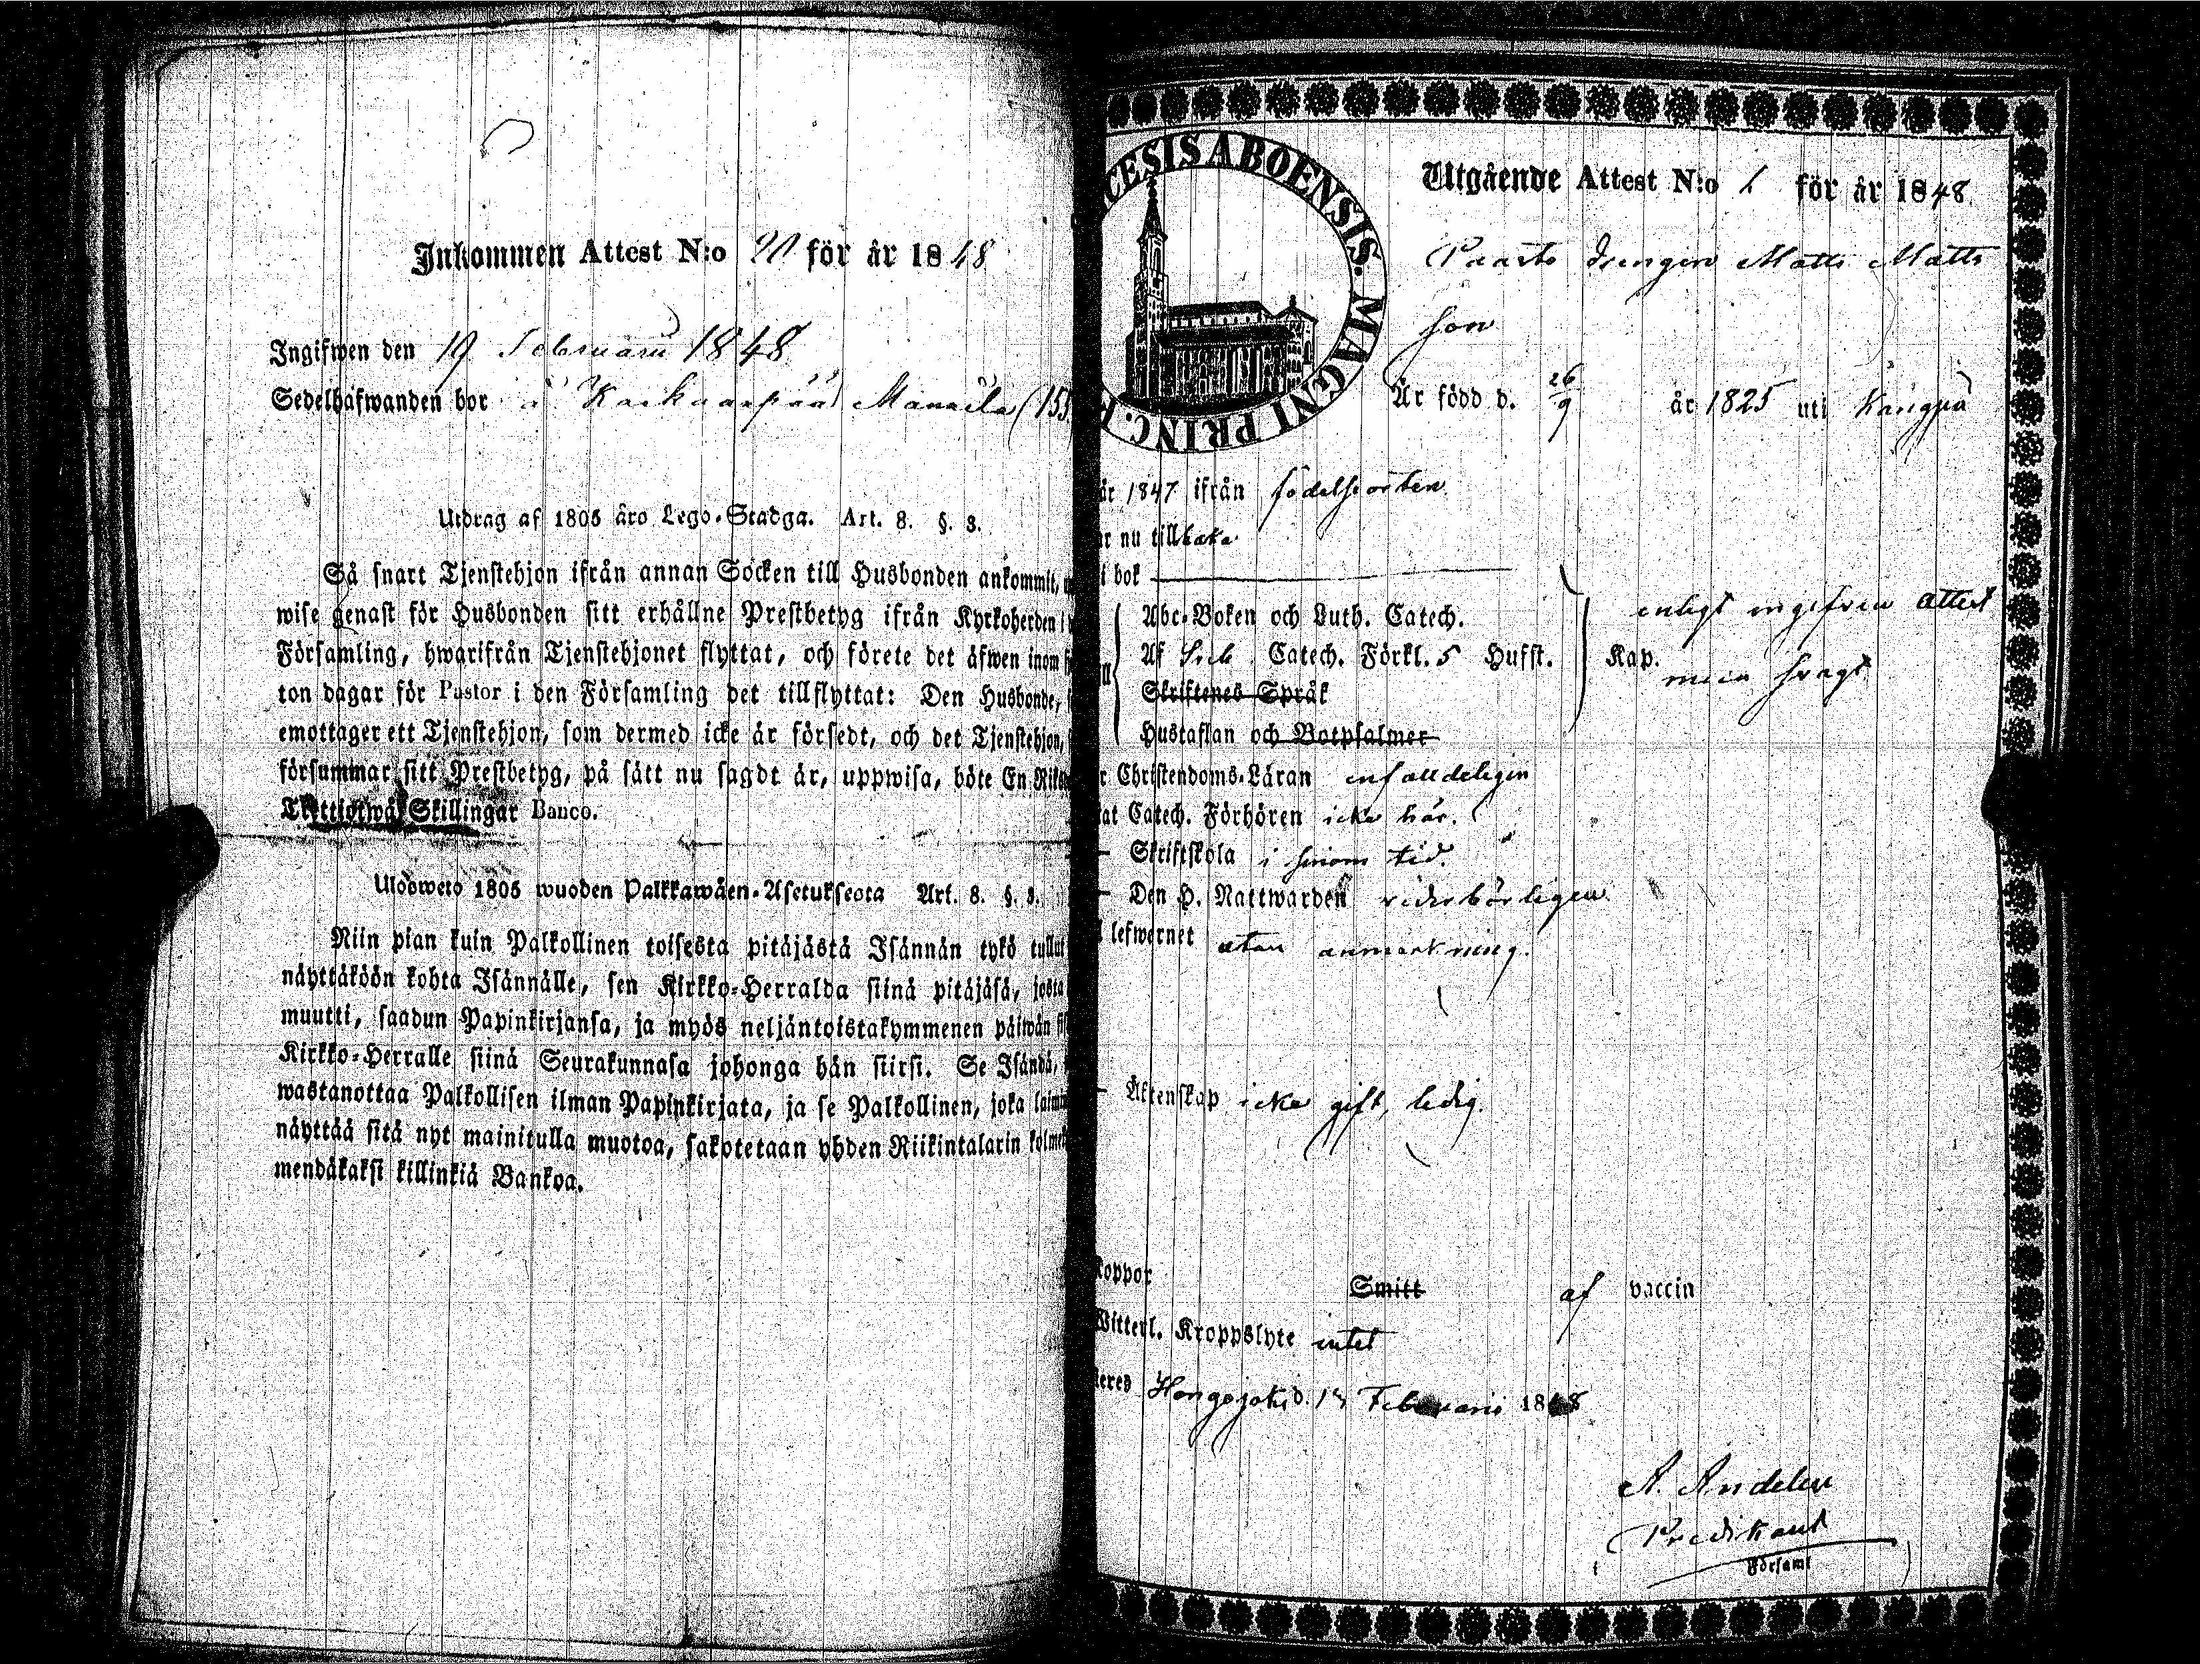 Inkommen Attest N:o för år 1848
Ingifwen den 19 Februarii 1848
Sedelhafwanden bor å Karhaanpää Mannila (155
Utdrag af 1805 års Lego-Stadga. Art. 8. §. 3.
Så snart Tjenstehjon ifrån annan Socken till Husbonden ankommit,
wise genast för Husbonden sitt erhållne Prestbetyg ifrån Kyrkoherden i
Församling, hwarifrån Tjenstehjonet flyttat, och förete det äfwen inom
ton dagar för Pastor i den Församling det tillflyttat: Den Husbonde,
emottager ett Tjenstehjon, som dermed icke är försedt, och det Tjenstehjon,
försummar sitt Prestbetyg, på sätt nu sagdt är, uppwisa, böte En Riks
Trettiotwå Skillingar Banco.
Ulosweto 1805 wuoden Palkkawäen-Asetuksesta Art. 8. §. 3.
Niin pian kuin Palkollinen toisesta pitäjästä Isännän tykö tullut
näyttäköön kohta Isännälle, sen Kirkko-Herralda siinä pitäjäsä, josta
muutti, saadun Papinkirjansa, ja myös neljäntoistakymmenen päiwän
Kirkko-Herralle siinä Seurakunnasa johonga hän siirsi. Se Isändä,
wastanottaa Palkollisen ilman Papinkirjata, ja se Palkollinen, joka laimin
näyttää sitä nyt mainitulla muotoa, sakotetaan yhden Riikintalarin kolme
mendäkaksi killinkiä Bankoa.
CESIS ABOENSIS. MAGNI PRINC. F
Utgående Attest N:o 1 för år 1848
Drengen Matts Matts
son
Är född d. 26/9 år 1825 uti Kangpä
år 1847 ifrån födelseorten
ar nu tillbaka
i bok
Abc-Boken och Luth. Catech.
Af Catech. Förkl. 5 Husst. Kap. enligt ingifven attest
Skriftenes Språk men svagt
Hustaflan och Botpsalmer
r Christendoms-Läran enfalldeligen
at Catech. Förhören icke här.
Skriftskola i sinom tid.
Den H. Nattwarden vederbörligen
lefwernet utan anmärkning.
Äktenskap icke gift, ledig.
Koppor Smitt af vaccin
Witterl. Kroppslyte intet
teres Hongojoki d. Februarii 1848
A. Andelin
Predikant
Församl